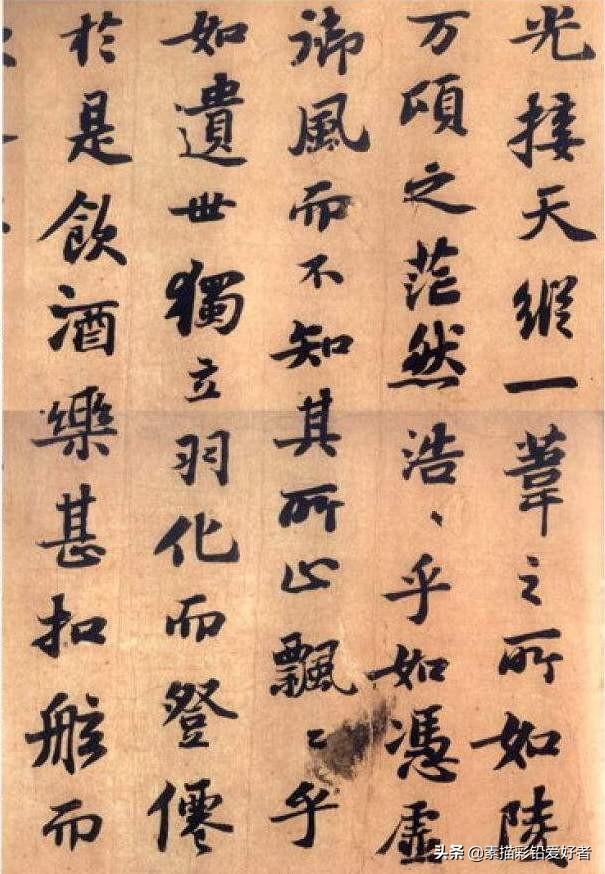 光接天縱一葦之所如陵
万頃之茫然浩〻乎如馮虛
御風而不知其所止飄〻乎
如遺世獨立羽化而登僊
於是飲酒樂甚扣舷而
头条 @素描彩铅爱好者